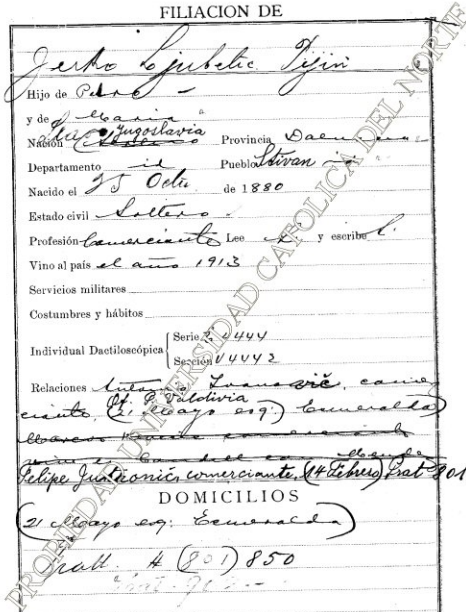 FILIACION DE
Jerko Ljubetic Pijin
Hijo de Pedro -
y de Maria
Nación Jugoslavia Provincia
Departamento id Pueblo Stivan
Nacido el 25 Octu de 1880
Estado civil Soltero -
Profesión Comerciante Lee si y escribe
Vino al país el año 1913
Servicios militares
Costumbres y hábitos
Individual Dactiloscópica
Serie V 4444
Sección V 4442
Relaciones Antonio Ivanovič, comer
Of. P. Valdivia
ciante, (21 Mayo esq: Esmeralda)
Felipe comerciante, (14 Febrero) Prat 801
DOMICILIOS
(21 Mayo esq: Esmeralda)
Pratt. # (801) 850
PROPIEDAD UNIVERSIDAD CATOLICA DEL NORTE